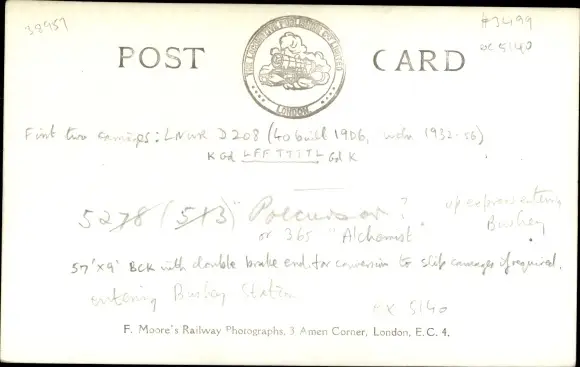 38957
#3499
oc 5140
POST CARD
THE LOCOMOTIVE PUBLISHING CO LIMITED
LONDON
First two carriages: LNWR D208 (40 built 1906, wdn 1932-56)
K Gd LFFTTTTL Gd K
5278 (513) "Precursor?
or 365 "Alchemist
up express entering
Bushey
57'x9' BCK with double brake end for conversion to slip carriages if required.
entering Bushey Station
5140
F. Moore's Railway Photographs, 3 Amen Corner, London, E.C. 4.